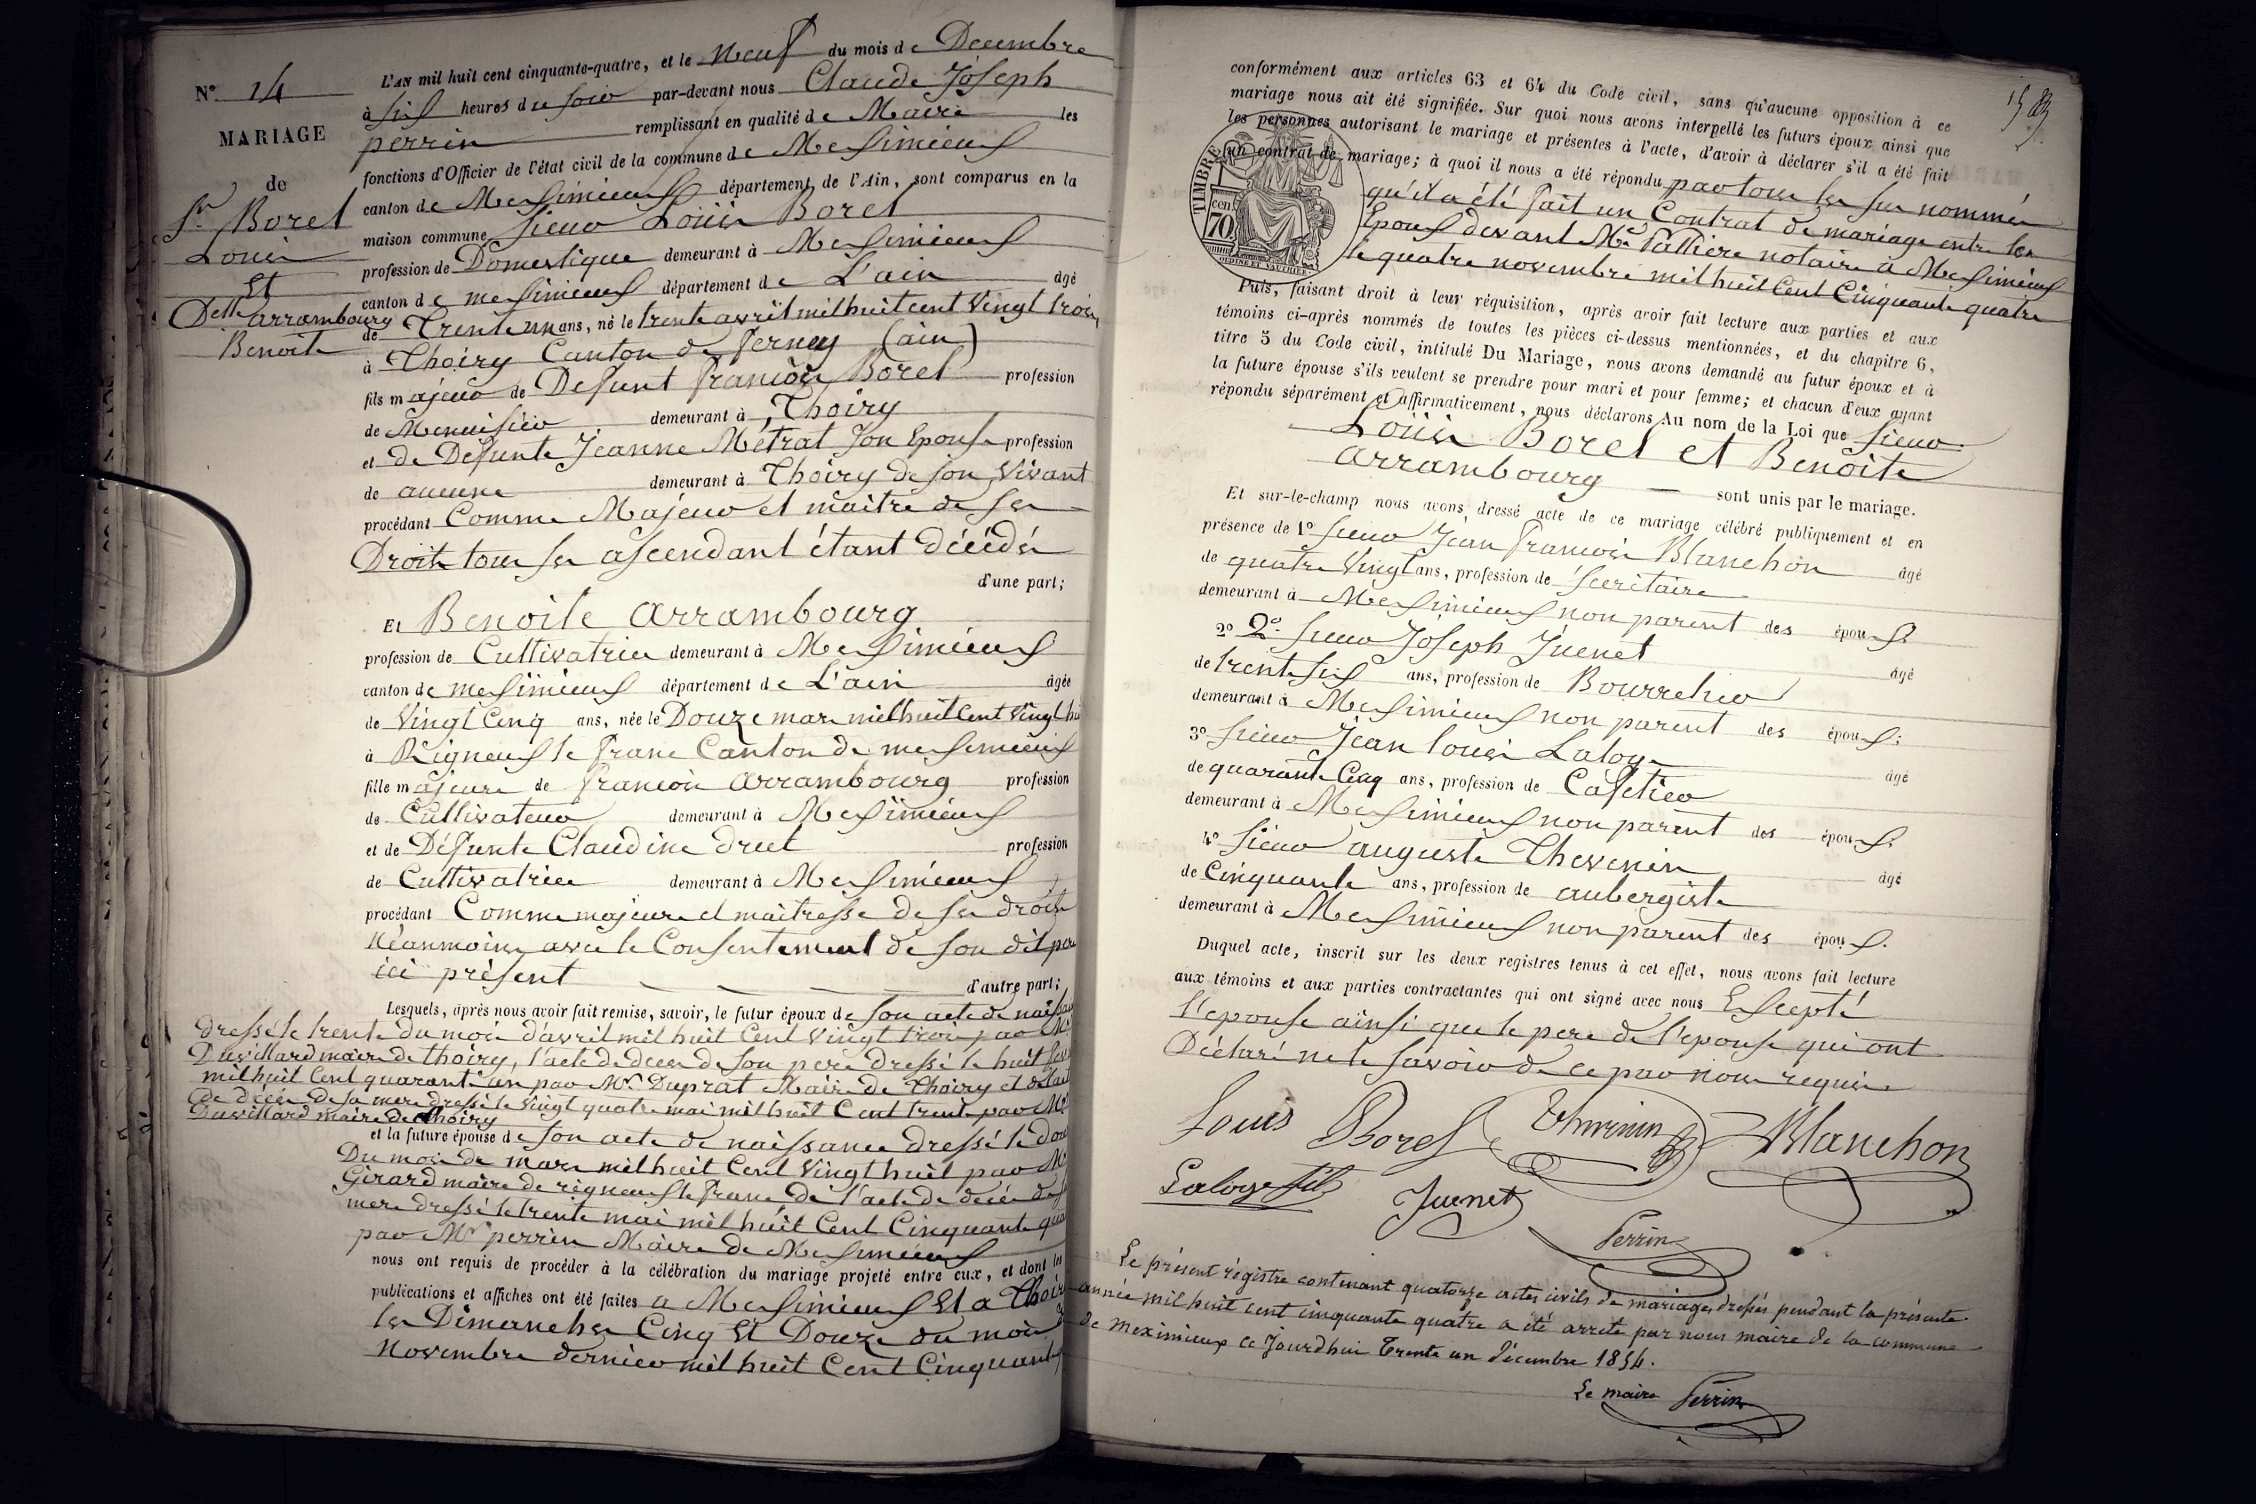 L'AN mil huit cent cinquante-quatre, et le neuf du mois de Decembre
N° 14
à six heures du soir par-devant nous Claude Joseph
perrin remplissant en qualité de Maire les
MARIAGE
fonctions d'Officier de l'état civil de la commune de Meximieux
de
canton de Meximieux département de l'Ain, sont comparus en la
Sr. Borel
maison commune sieur Loüis Borel
Louis
profession de Domestique demeurant à Meximieux
Et
canton de meximieux département de L'ain âgé
Delle arrambourg
de Trente un ans, né le trente avril mil huit cent Vingt trois,
Benoite
à Thoiry Canton de ferney (ain)
fils majeur de Defunt françois Borel profession
de Menuisier demeurant à Thoiry
et de Defunte Jeanne Métrat son Epouse profession
de aucune demeurant à Thoiry de son Vivant
procédant Comme Majeur et maitre de ses
Droits tous ses ascendant étant décédés
d'une part;
Et Benoite arrambourg
profession de Cultivatrice demeurant à Meximieux
canton de meximieux département de L'ain âgée
de Vingt Cinq ans, née le Douze mars mil huit Cent Vingt hui
à Rigneux le franc Canton de meximieux
fille majeure de françois arrambourg profession
de Cultivateur demeurant à Meximieux
et de Défunte Claudine druet profession
de Cultivatrice demeurant à Meximieux
procédant Comme majeure et maitresse de ses droits
Néanmoins avec le Consentement de son dit pere
ici présent
d'autre part;
Lesquels, après nous avoir fait remise, savoir, le futur époux de son acte de naissan
dressé le trente du mois d'avril mil huit Cent Vingt trois par Mr.
Duvillard maire de thoiry, l'acte de décès de son pere dressé le huit
mil huit Cent quarant'un par Mr. Duprat Maire de Thoiry et de l'act
de décès de sa mere dressé le Vingt quatre mai mil huit Cent trente par Mr
Duvillard maire de thoiry
et la future épouse de son acte de naissance dressé le dou
Du mois de mars mil huit Cent Vingt huit par Mr
Girard maire de rigneux le franc, de l'acte de décès de s
mere dressé le trente mai mil huit Cent Cinquante qua
par Mr perrin Maire de Meximieux
nous ont requis de procéder à la célébration du mariage projeté entre eux, et dont les
publications et affiches ont été faites a Meximieux Et a Thoiry
les Dimanches Cinq Et Douze du mois
Novembre dernier mil huit Cent Cinquante
conformément aux articles 63 et 64 du Code civil, sans qu'aucune opposition à ce
mariage nous ait été signifiée. Sur quoi nous avons interpellé les futurs époux ainsi que
les personnes autorisant le mariage et présentes à l'acte, d'avoir à déclarer s'il a été fait
un contrat de mariage; à quoi il nous a été répondu par tous les sus nommés
TIMBRE
cen
70
OUDINE ET VAUTHIER
qu'il a été fait un Contrat de mariage entre les
Epoux devant Me notaire à Meximieux
le quatre novembre mil huit Cent Cinquante quatre
Puis, faisant droit à leur réquisition, après avoir fait lecture aux parties et aux
témoins ci-après nommés de toutes les pièces ci-dessus mentionnées, et du chapitre 6,
titre 5 du Code civil, intitulé Du Mariage, nous avons demandé au futur époux et à
la future épouse s'ils veulent se prendre pour mari et pour femme; et chacun d'eux ayant
répondu séparément et affirmativement, nous déclarons Au nom de la Loi que sieur
Loüis Borel et Benoite
arrambourg sont unis par le mariage.
Et sur-le-champ nous avons dressé acte de ce mariage célébré publiquement et en
présence de 1° sieur Jean françois Blanchon âgé
de quatre Vingt ans, profession de Secrétaire
demeurant à Meximieux non parent des époux.
2° 2° sieur Joseph Juenet âgé
de trente six ans, profession de Bourrelier
demeurant à Meximieux non parent des époux;
3° sieur Jean louis Laloge âgé
de quarante Cinq ans, profession de Cafetier
demeurant à Meximieux non parent des époux.
4° sieur auguste Thevenin âgé
de Cinquante ans, profession de aubergiste
demeurant à Meximieux non parent des époux.
Duquel acte, inscrit sur les deux registres tenus à cet effet, nous avons fait lecture
aux témoins et aux parties contractantes qui ont signé avec nous Excepté
l'epouse ainsi que le pere de l'epouse qui ont
Déclaré ne le savoir de ce par nous réquis
Louis Borel Thevenin Blanchon
Laloge fils Juenet
Perrin
Le présent régistre contenant quatorze actes civils de mariages dressés pendant la présente
année mil huit cent cinquante quatre a été arrêté par nous maire de la commune
de Meximieux ce Jourdhui Trente un décembre 1854.
Le maire Perrin